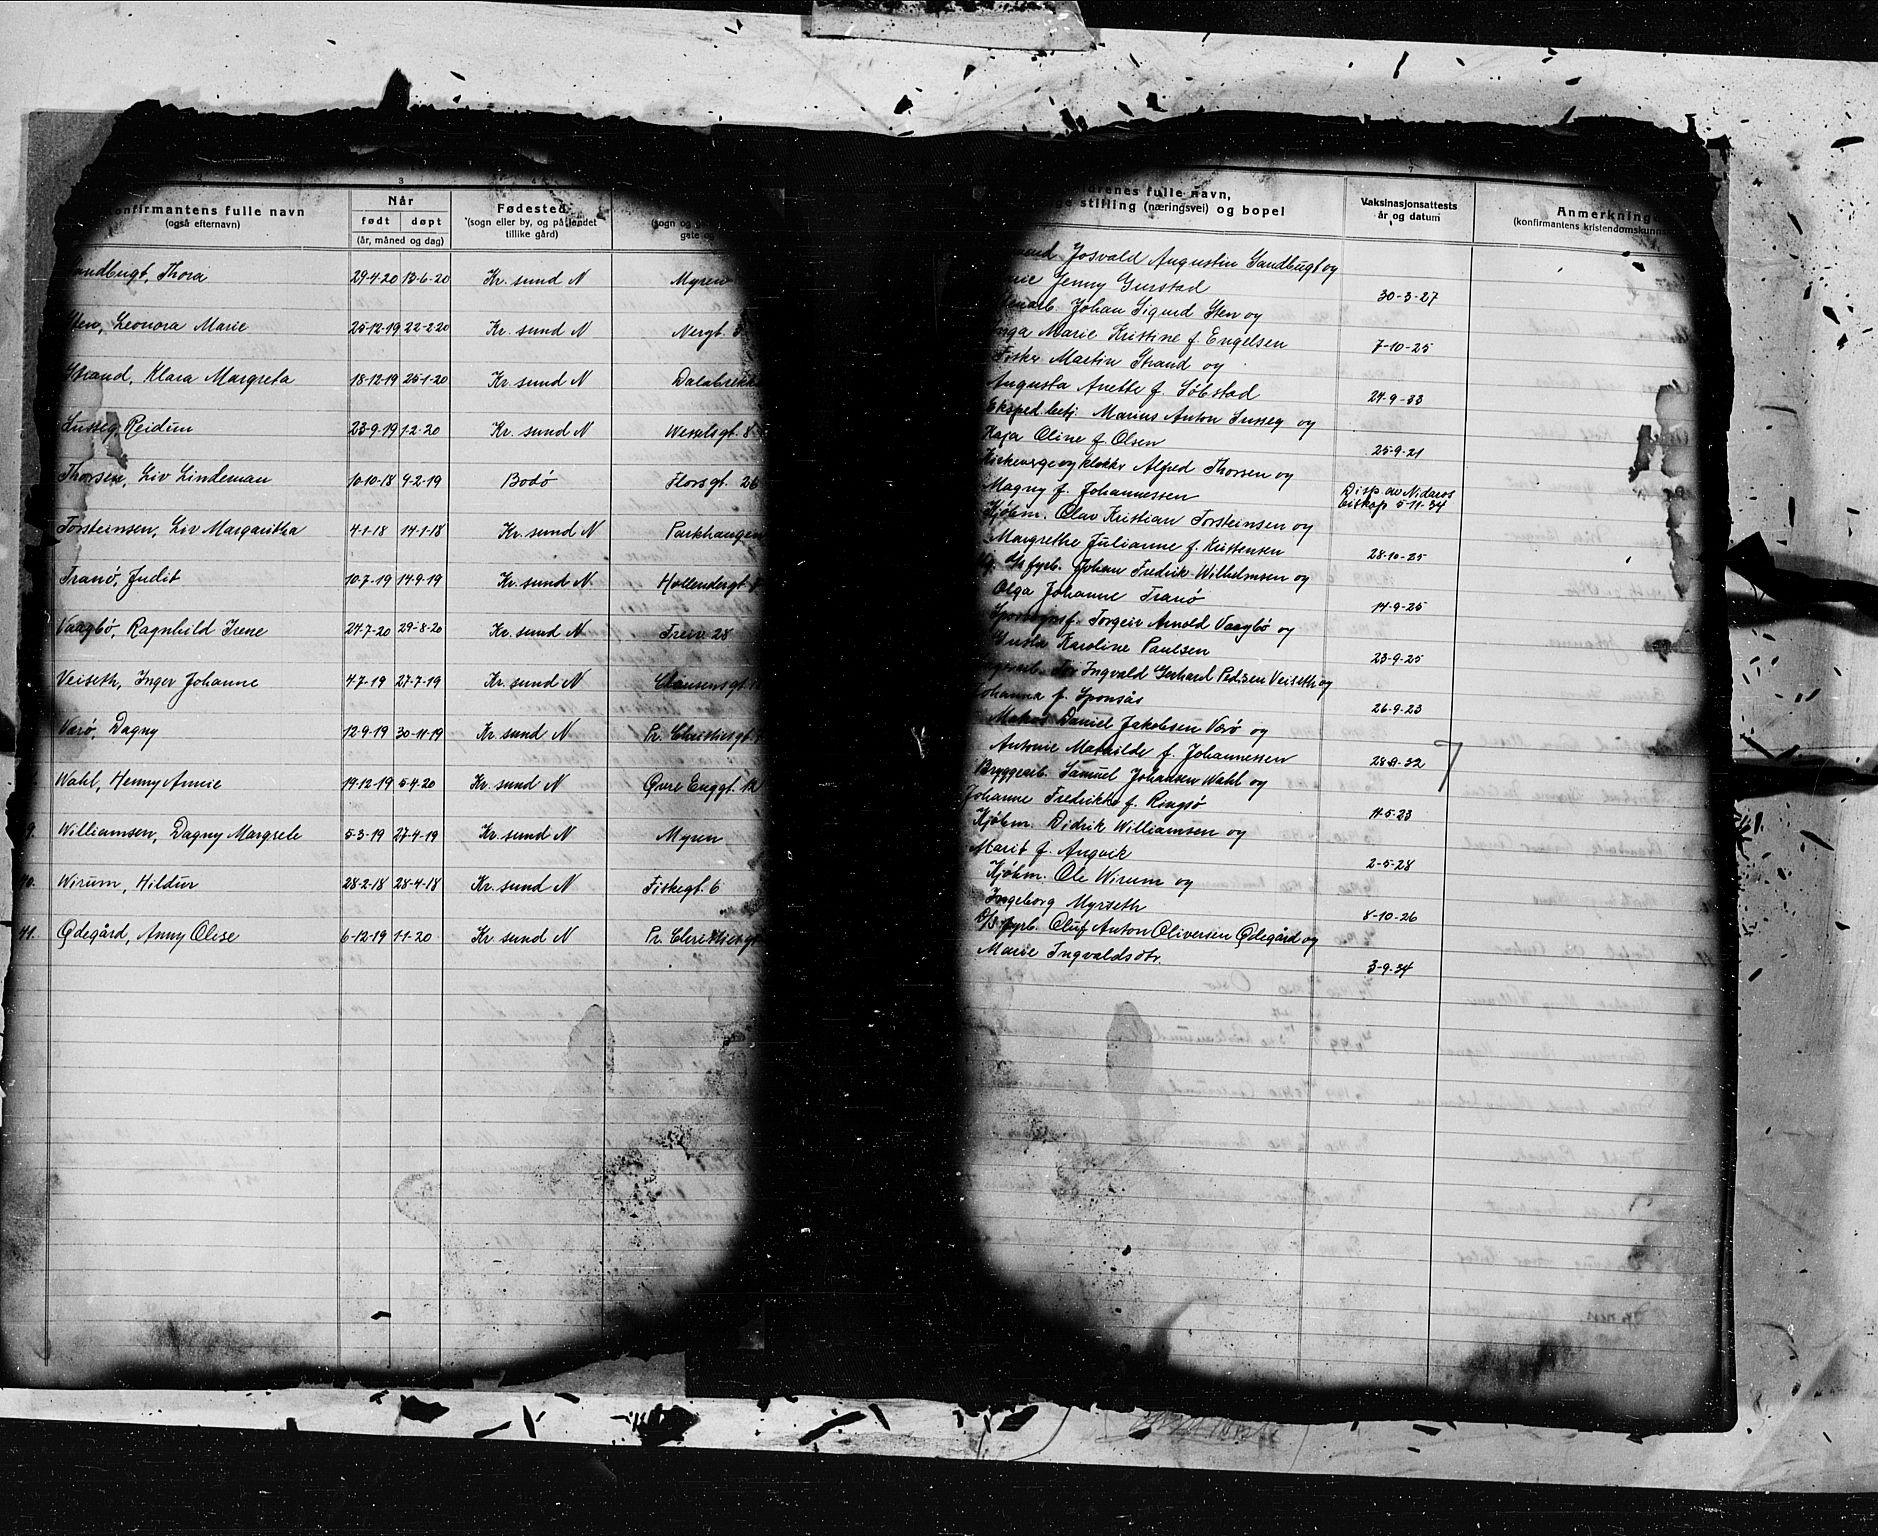 2 3 4
onfirmantens fulle navn
(også efternavn)
Når
født døpt
(år, måned og dag)
Fødested
(sogn eller by, og på landet
tillike gård)
(sogn og
gate og
andbugt, Thora 29-4-20 13-6-20 Kr. sund N Myren
Sten, Leonora Marie 25-12-19 22-2-20 Kr. sund N Nergt.
Strand, Klara Margreta 18-12-19 25-1-20 Kr. sund N
Susseg, Reidun 23-9-19 1-2-20 Kr. sund N Wesselsgt. 8
Thorsen, Liv Lindeman 10-10-18 9-2-19 Bodö Florsgt. 26
Torsteinsen, Liv Margaritha 4-1-18 14-1-18 Kr. sund N Parkhaugen
Tranö, Judit 10-7-19 14-9-19 Kr. sund N. Hollendergt.
Vaagbö, Ragnhild Irene 24-7-20 29-8-20 Kr. sund N Freiv 28
Veiseth, Inger Johanne 4-7-19 27-7-19 Kr. sund N Clausensgt.
Værö, Dagny 12-9-19 30-11-19 Kr. sund N Pr. Christiesgt.
Wahl, Henny Annie 19-12-19 5-4-20 Kr. sund N Øvre Enggt. 12
9. Williamsen, Dagny Margrete 5-3-19 27-4-19 Kr. sund N Myren
40. Wirum, Hildur 28-2-18 28-4-18 Kr. sund N Fiskegt. 6
41. Ødegård, Anny Olise 6-12-19 1-1-20 Kr. sund N Pr. Christiesgt
7
ldrenes fulle navn,
ge stilling (næringsvei) og bopel
Vaksinasjonsattests
år og datum
Anmerkninga
(konfirmantens kristendomskunns
Josvald Augustin Sandbugt og
Jenny Gurstad 30-3-27
Johan Sigurd Sten og
Inga Marie Kristine f. Engelsen 7-10-25
Fisker Martin Strand og
Augusta Anette f. Söbstad 24-9-33
Eksped. betj. Marius Anton Susseg og
Kaja Oline f. Olsen 25-9-21
Kirkeverge og klokker Alfred Thorsen og
Magny f. Johannessen Disp. av Nidaros
biskop 5-11-34
Kjöbm. Olav Kristian Torsteinsen og
Margrethe Julianne f. Kristensen 28-10-25
D/s fyrb. Johan Fredrik Wilhelmsen og
Olga Johanne Tranö 14-9-25
Torgeir Arnold Vaagbö og
Karoline Paulsen 23-9-25
Tor Ingvald Gerhard Pedersen Veiseth og
Johanna f. Sponsås 26-9-23
Daniel Jakobsen Værö og
Antonie Mathilde f. Johannessen 28-9-32
Bryggearb. Samuel Johansen Wahl og
Johanne Fredrikke f. Ringsö 11-5-23
Kjöbm. Didrik Williamsen og
Marit f. Angvik 2-5-28
Kjöbm. Ole Wirum og
Ingeborg Myrseth 8-10-26
D/s fyrb. Oluf Anton Oliversen Ødegård og
Marie Ingvaldsdtr. 3-9-34
7